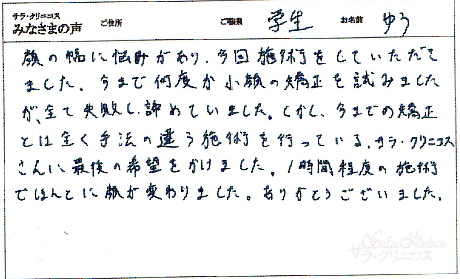 サラ・クリニコス
みなさまの声 ご住所 ご職業 学生 お名前 ゆう
顔の幅に悩みがあり、今回施術をしていただき
ました。今まで何度か小顔の矯正を試みました
が、全て失敗し、諦めていました。しかし、今までの矯正
とは全く手法の違う施術を行っている、サラ・クリニコス
さんに最後の希望をかけました。1時間程度の施術
でほんとに顔が変わりました。ありがとうございました。
サラ・クリニコス